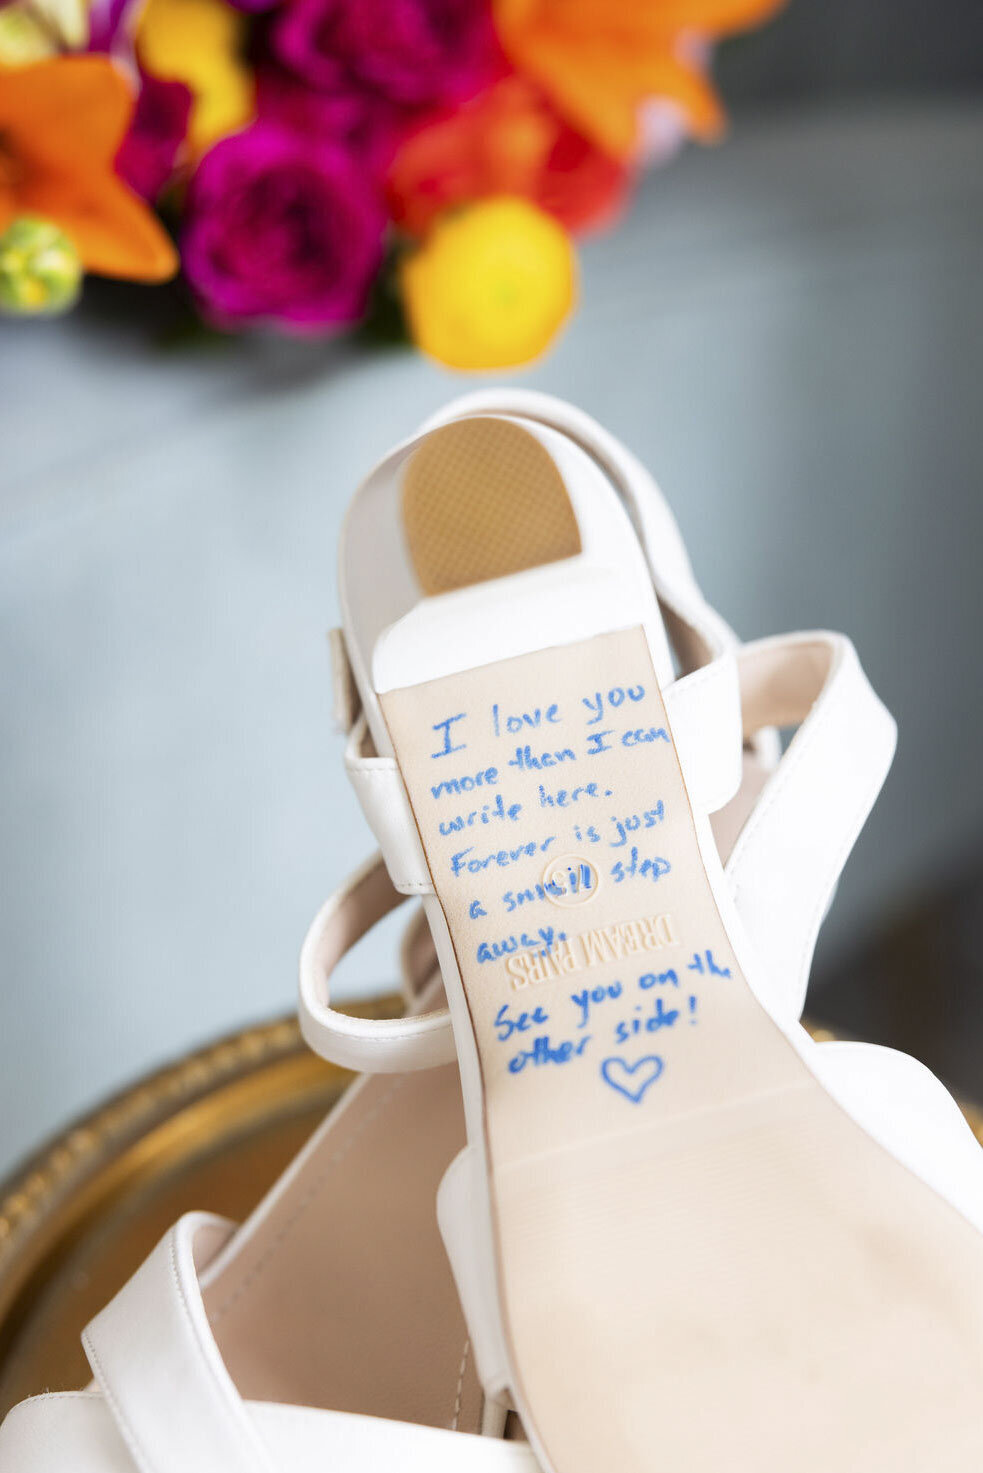 I love you
more than I can
write here.
Forever is just
a small step
away.
DREAM PAIRS
See you on the
other side!